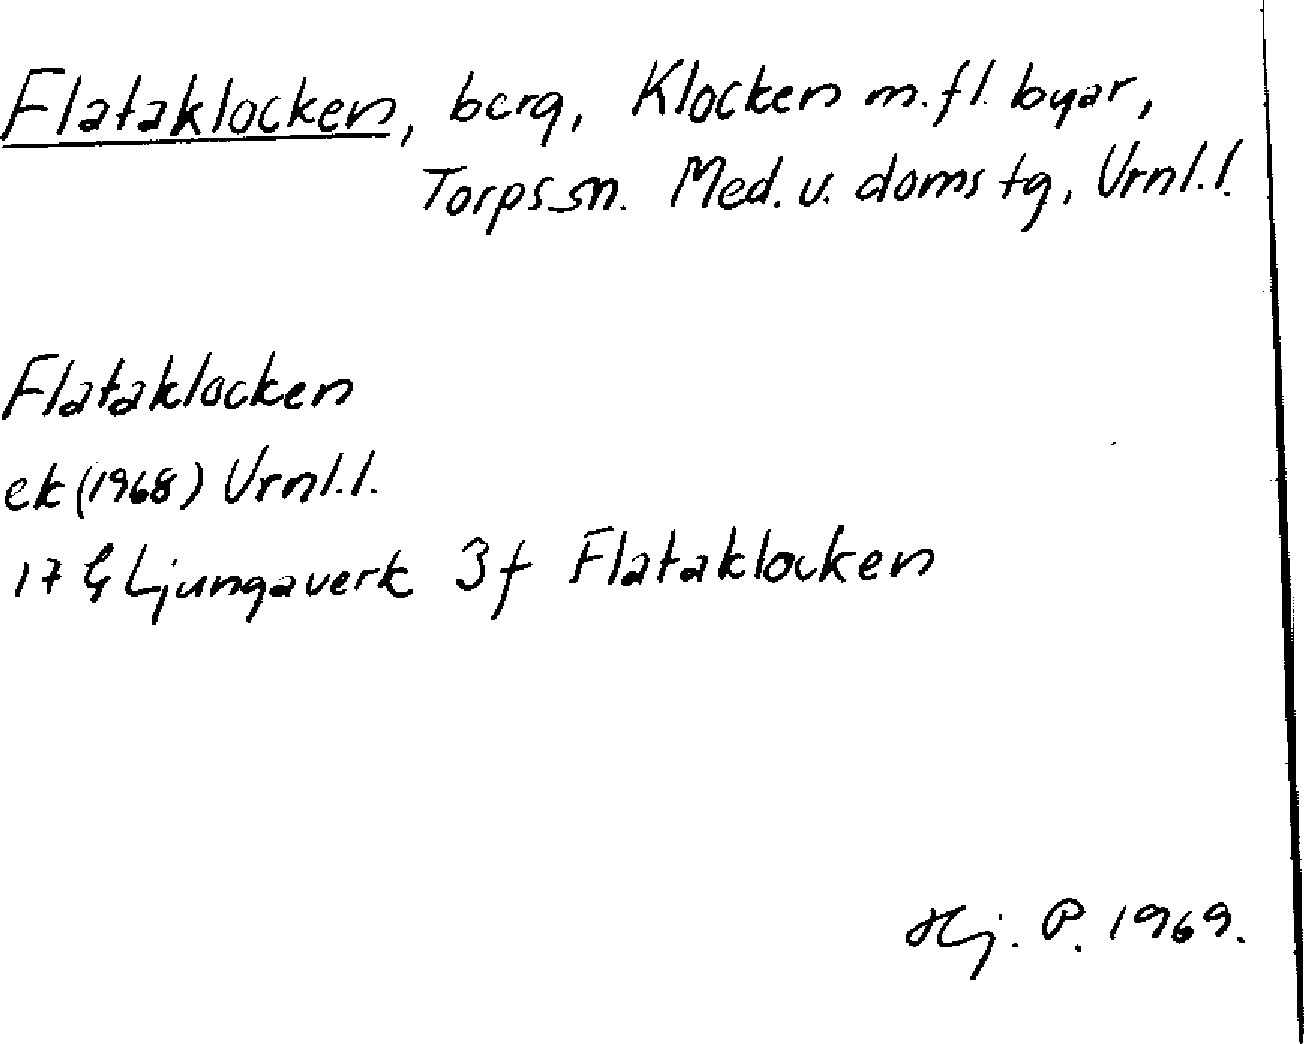 Flataklocken, berg, Klocken m.fl. byar,
Torps sn. Med. v. doms tg, Vrnl.l.
Flataklocken
ek (1968) Vrnl.l.
17 G Ljungaverk 3f Flataklocken
Hj. P. 1969.